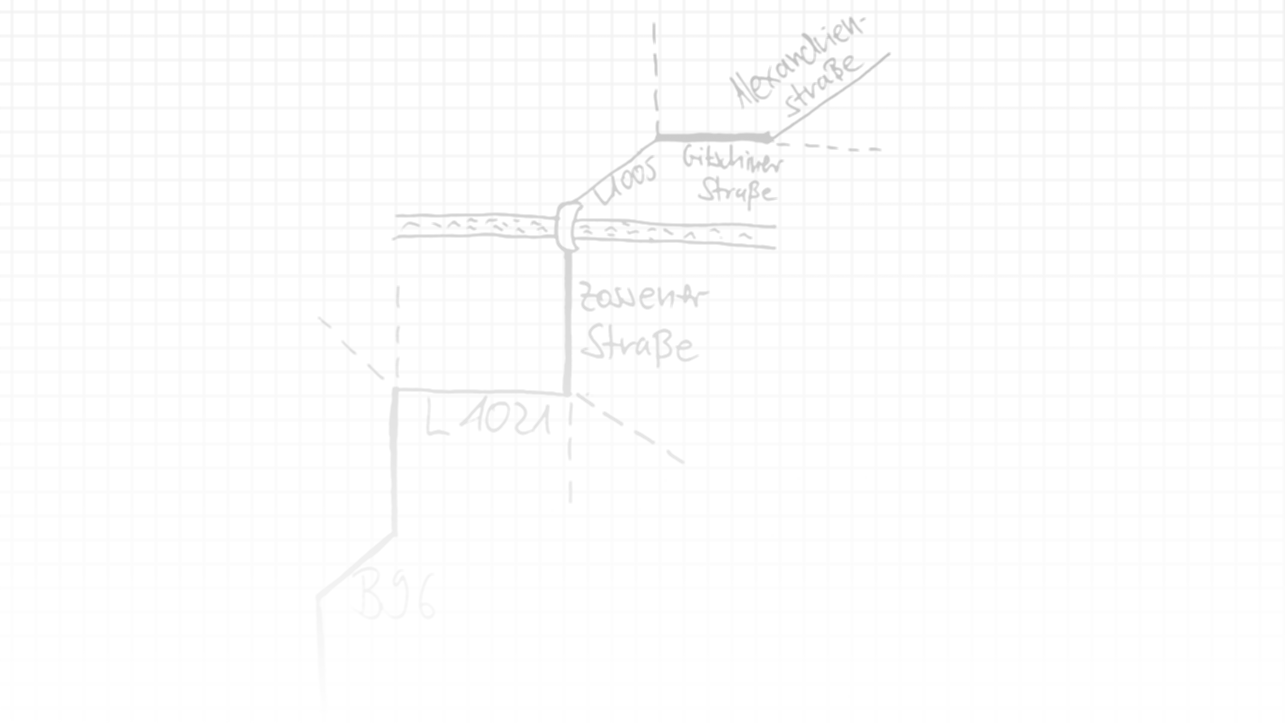 Alexandrien-
straße
Gitschiner
Straße
L1005
Zossener
Straße
L 1021
B96